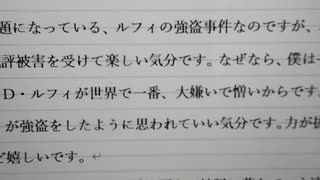 題になっている、ルフィの強盗事件なのですが、
評被害を受けて楽しい気分です。なぜなら、僕は
D・ルフィが世界で一番、大嫌いで憎いからです
が強盗をしたように思われていい気分です。力が
ど嬉しいです。↵